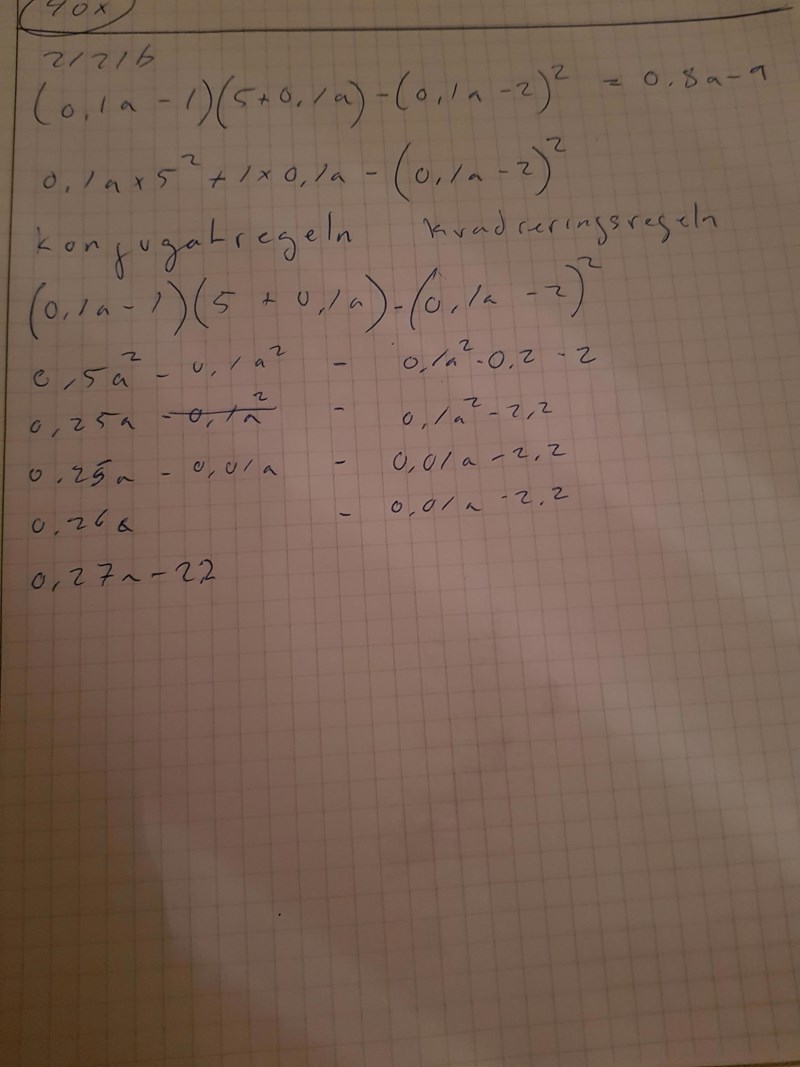 40x
2121b
(0,1a - 1)(5+0,1a)-(0,1a-2)² = 0.8a-9
0,1a x 5² + 1 x 0,1a - (0,1a - 2)²
konjugatregeln kvadreringsregeln
(0,1a - 1)(5 + 0,1a)-(0,1a - 2)²
0,5a² - 0,1a² - 0,1a²-0,2 - 2
0,25a - 0,1a² - 0,1a² - 2,2
0,25a - 0,01a - 0,01a - 2,2
0,26a - 0,01a - 2,2
0,27a - 22